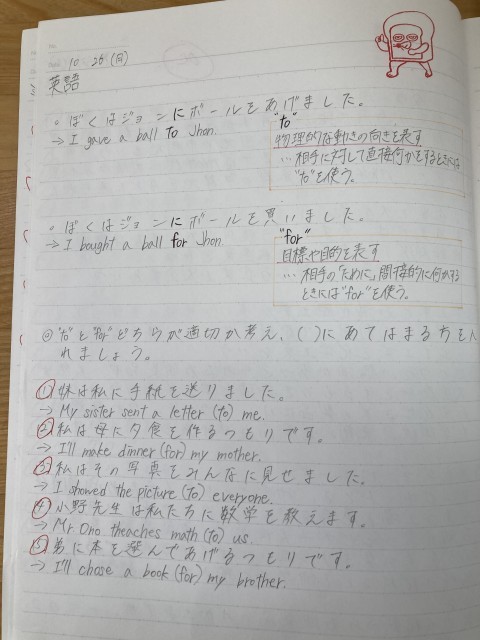 10 26(月)
英語
○ ぼくはジョンにボールをあげました。
→ I gave a ball to Jhon.
"to"
物理的な動きの向きを表す
…相手に対して直接何かをするときには
"to"を使う。
○ ぼくはジョンにボールを買いました。
→ I bought a ball for Jhon.
"for"
目標や目的を表す
…相手の「ために」間接的に何かする
ときには"for"を使う。
◎ "to"と"for"どちらが適切か考え、( )にあてはまる方を入
れましょう。
① 妹は私に手紙を送りました。
→ My sister sent a letter (to) me.
② 私は母に夕食を作るつもりです。
→ I'll make dinner (for) my mother.
③ 私はその写真をみんなに見せました。
→ I showed the picture (to) everyone.
④ 小野先生は私たちに数学を教えます。
→ Mr Ono theaches math (to) us.
⑤ 弟に本を選んであげるつもりです。
→ I'll chose a book (for) my brother.